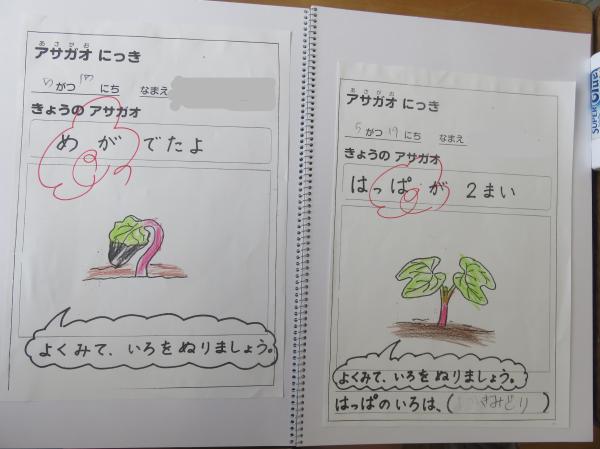 あさがお
アサガオ にっき
がつ にち なまえ
きょうの アサガオ
めが でたよ
よくみて、いろを ぬりましょう。
あさがお
アサガオ にっき
5 がつ 19 にち なまえ
きょうの アサガオ
はっぱが 2まい
よくみて、いろを ぬりましょう。
はっぱの いろは、( きみどり )
SUPER Glue